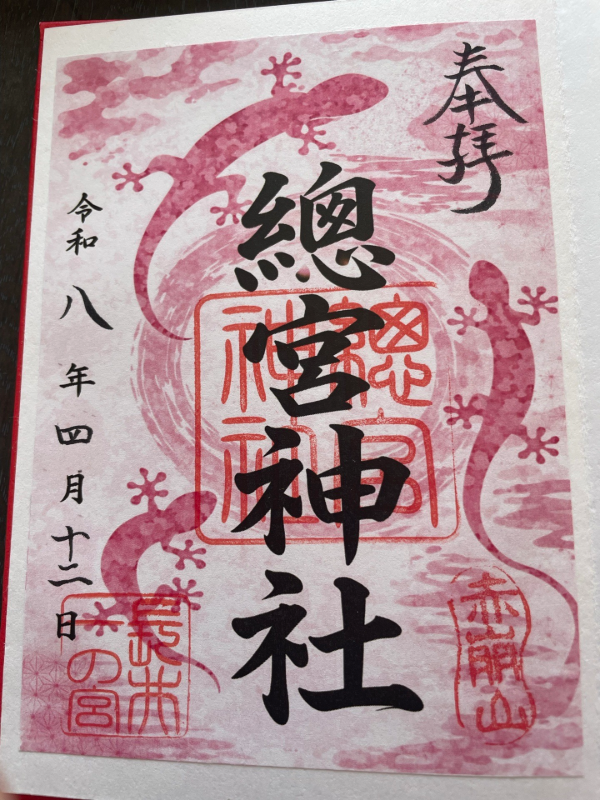 奉拝
總宮神社
令和八年四月十二日
總宮神社
赤崩山
長井一の宮